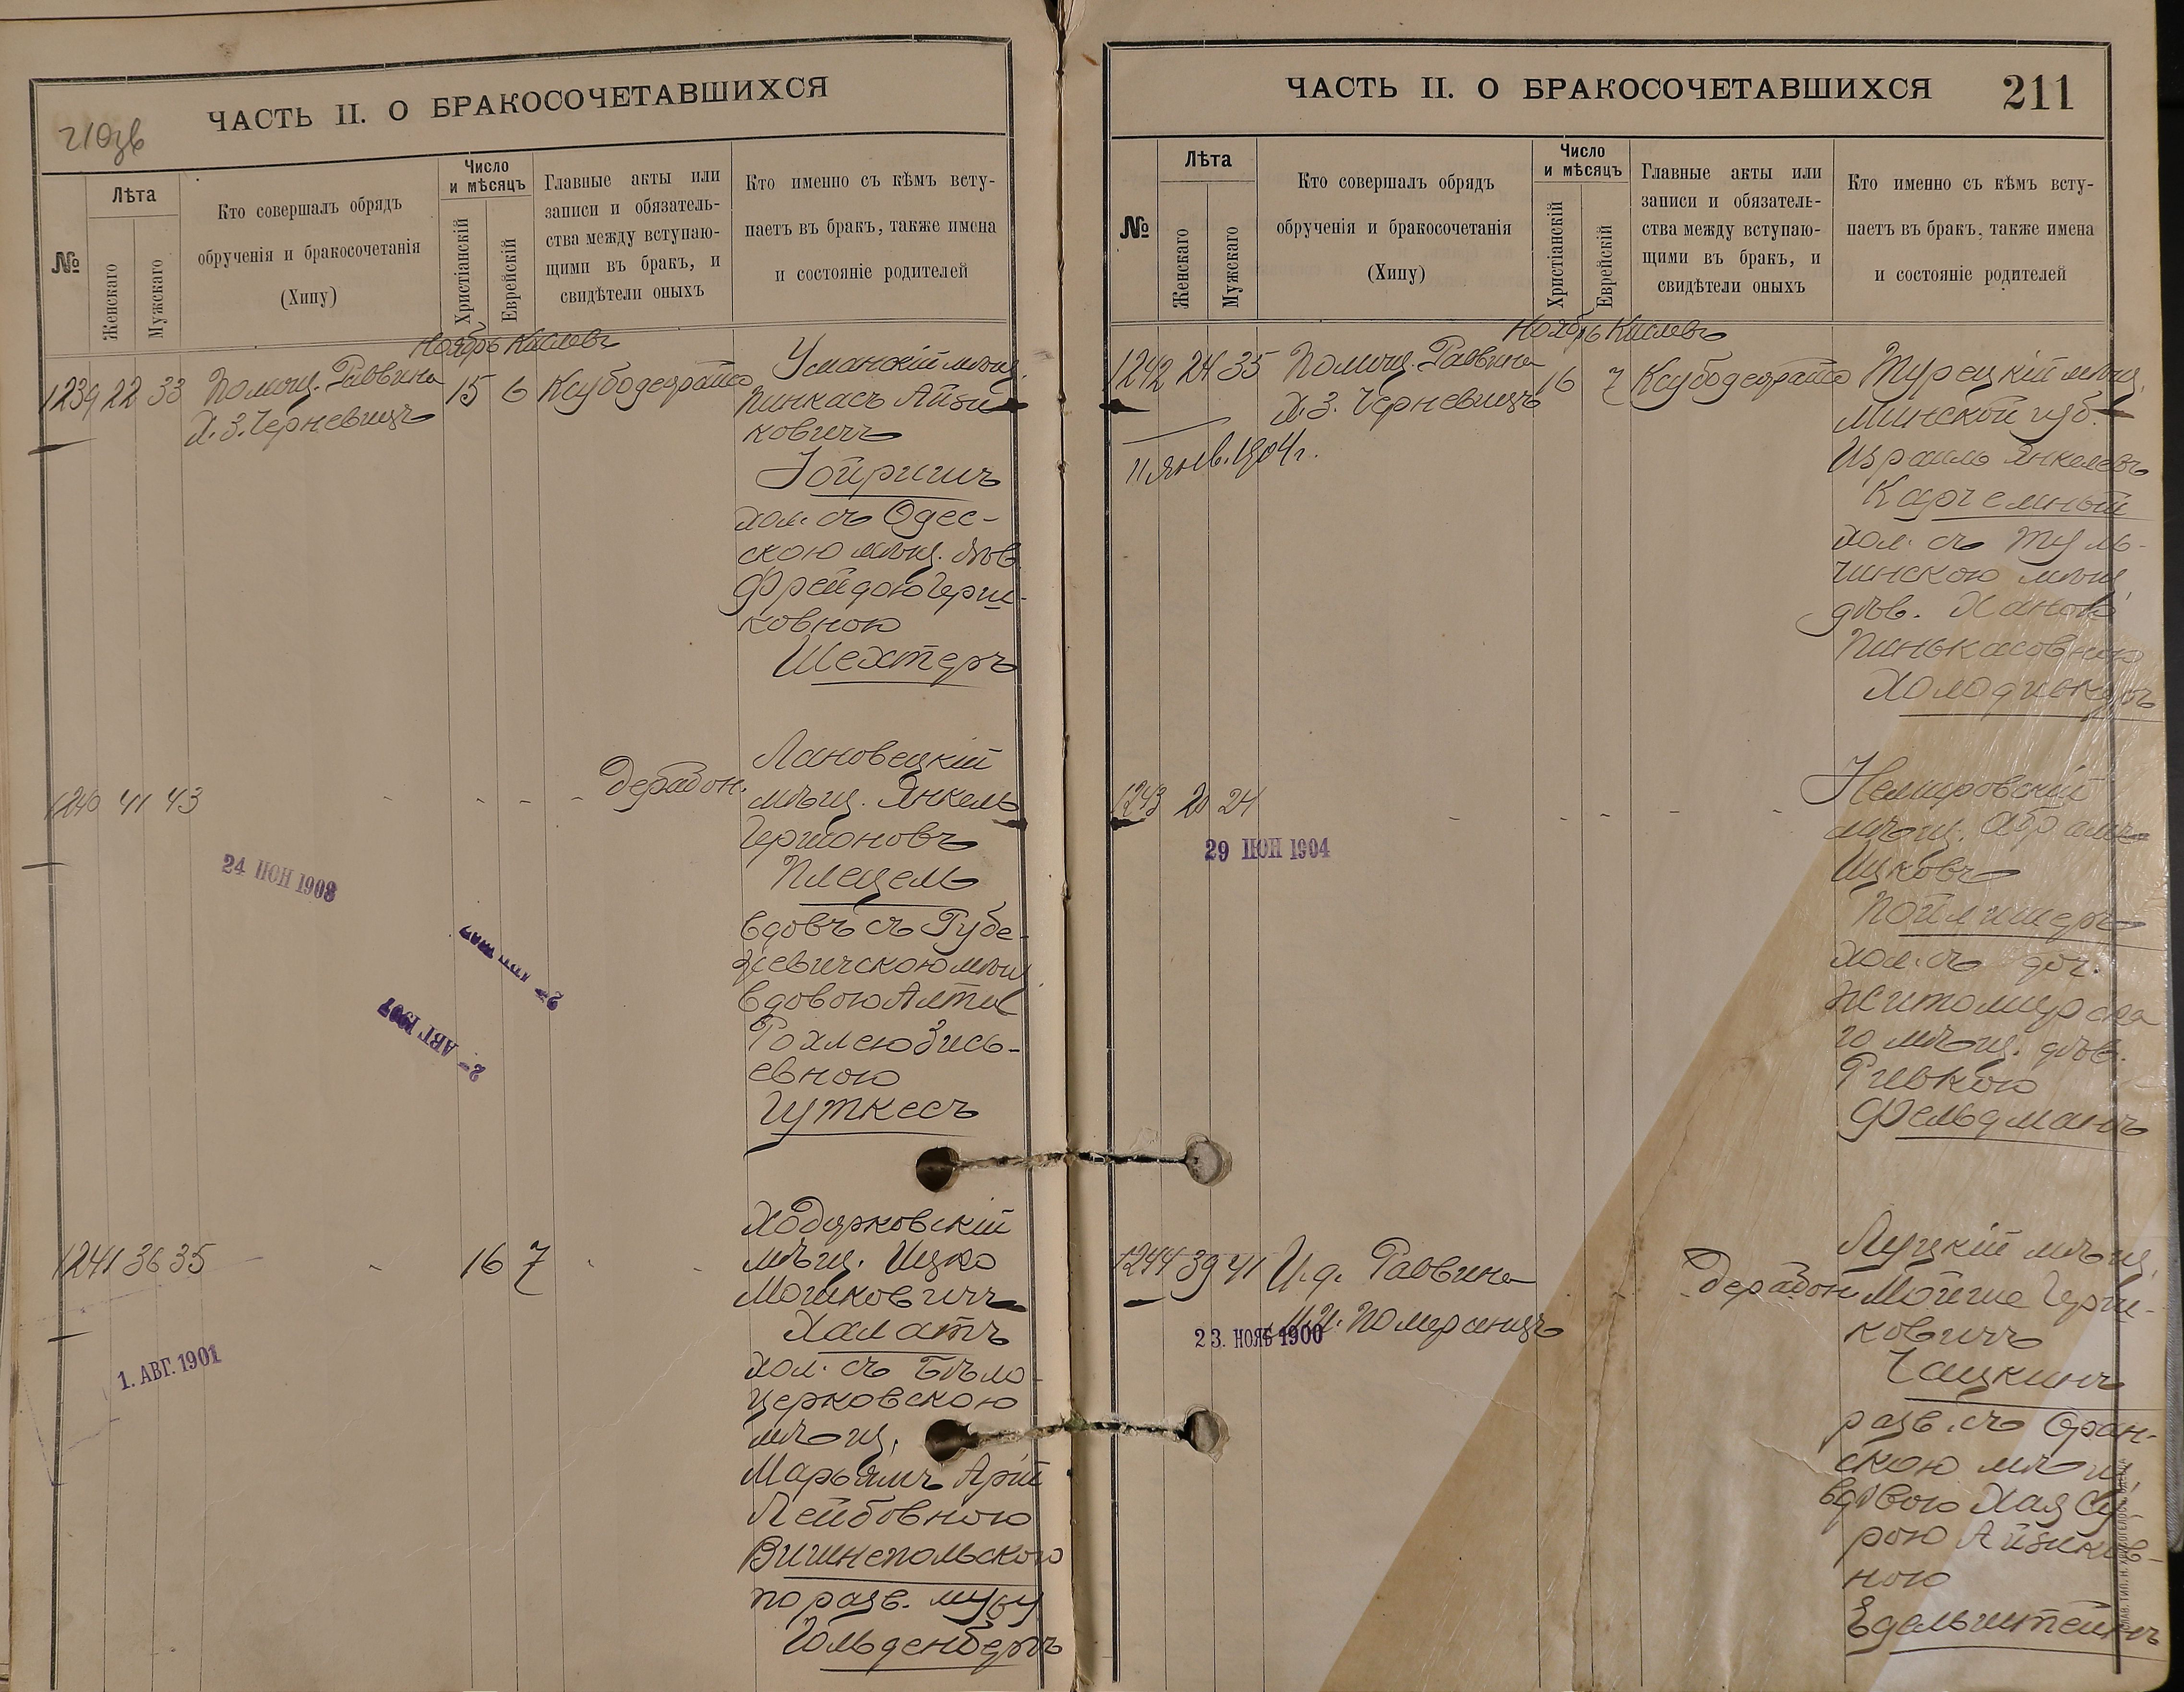 ЧАСТЬ II. О БРАКОСОЧЕТАВШИХСЯ
№
Лѣта
Женскаго
Мужскаго
Кто совершалъ обрядъ
обрученія и бракосочетанія
(Хипу)
Число
и мѣсяцъ
Христіанскій
Еврейскій
Главные акты или
записи и обязатель-
ства между вступаю-
щими въ бракъ, и
свидѣтели оныхъ
Кто именно съ кѣмъ всту-
паетъ въ бракъ, также имена
и состояніе родителей
Ноябрь Кислевъ
1239 22 33 Помощ. Раввина 15 6
Х. З. Черневицъ
Уманскій мѣщ.
Пинкасъ Айзи
ковичъ
Іойришъ
хол. съ Одес-
скою мѣщ. дѣв.
Фрейдою Герш-
ковною
Шехтеръ
1240 41 43
24 ІЮН 1908
2- АВГ 1907
Дерабон.
Лановецкій
мѣщ. Янкель
Гершоновъ
Плецель
вдовъ съ Рубе-
жевичскою мѣщ.
вдовою Алты
Рохлею Зись-
евною
Гуткесъ
1241 36 35 16 7
1. АВГ. 1901
Ходорковскій
мѣщ. Ицко
Мошковичъ
Халатъ
хол. съ Бѣло-
церковскою
мѣщ.
Марьямъ Арій
Лейбовною
Вишнепольскою
по разв. мужу
Гольденбергъ
ЧАСТЬ II. О БРАКОСОЧЕТАВШИХСЯ 211
№
Лѣта
Женскаго
Мужскаго
Кто совершалъ обрядъ
обрученія и бракосочетанія
(Хипу)
Число
и мѣсяцъ
Христіанскій
Еврейскій
Главные акты или
записи и обязатель-
ства между вступаю-
щими въ бракъ, и
свидѣтели оныхъ
Кто именно съ кѣмъ всту-
паетъ въ бракъ, также имена
и состояніе родителей
Ноябрь Кислевъ
1242 24 35 Помощ. Раввина 16 7
Х. З. Черневицъ
11 янв. 1904 г.
Турецкій мѣщ.
Минской губ.
Израиль Янкелевъ
Карчемный
хол. съ Туль-
чинскою мѣщ.
дѣв. Ханою
Пинькасовною
1243 20 24
29 ІЮН 1904
Немировскій
мѣщ. Абрамъ
Ицковъ
Пойлишеръ
хол. съ доч.
Житомирска
го мѣщ. дѣв.
Ривкою
Фельдманъ
1244 39 41 И. д. Раввина
М. И. Померанцъ
23. НОЯБ 1900
Дерабон.
Луцкій мѣщ.
Мойше Герш-
ковичъ
Чацкинъ
разв. съ Оран-
скою мѣщ.
вдовою Хая Су-
рою Айзиков-
ною
Едельштейнъ